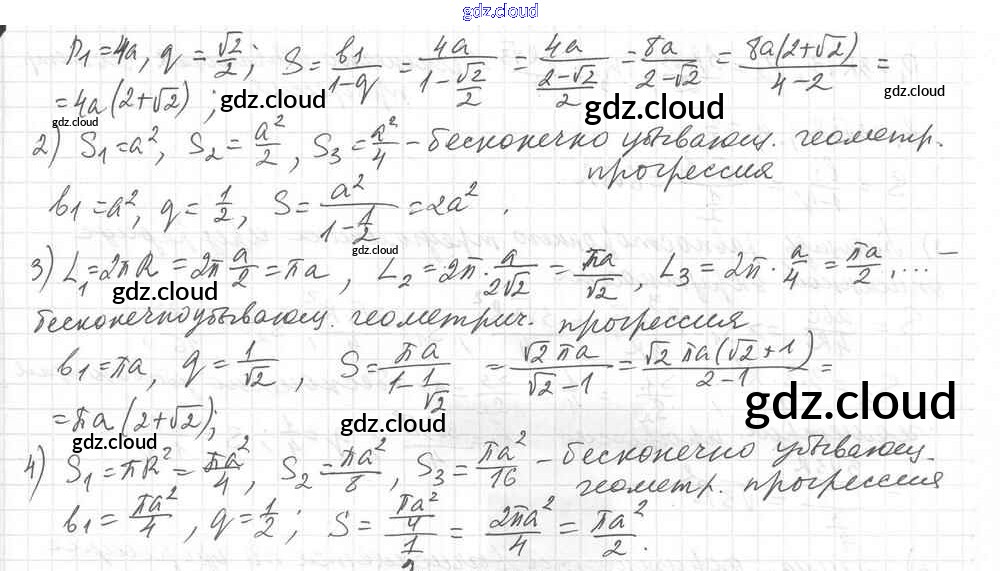 gdz.cloud
P₁ = 4a, q = √2/2; S = b₁/(1-q) = 4a/(1-√2/2) = 4a/((2-√2)/2) = 8a/(2-√2) = 8a(2+√2)/(4-2) =
= 4a(2+√2);
gdz.cloud gdz.cloud gdz.cloud gdz.cloud
2) S₁ = a², S₂ = a²/2, S₃ = a²/4 – бесконечно убывающ. геометр.
прогрессия
b₁ = a², q = 1/2, S = a²/(1-1/2) = 2a².
gdz.cloud
3) L₁ = 2πR = 2π a/2 = πa, L₂ = 2π · a/(2√2) = πa/√2, L₃ = 2π · a/4 = πa/2, ... –
gdz.cloud gdz.cloud
бесконечно убывающ. геометрич. прогрессия
b₁ = πa, q = 1/√2, S = πa/(1-1/√2) = √2 πa/(√2-1) = √2 πa(√2+1)/(2-1) =
gdz.cloud
= πa(2+√2);
gdz.cloud gdz.cloud
4) S₁ = πR² = πa²/4, S₂ = πa²/8, S₃ = πa²/16 – бесконечно убывающ.
геометр. прогрессия
b₁ = πa²/4, q = 1/2; S = (πa²/4)/(1/2) = 2πa²/4 = πa²/2.